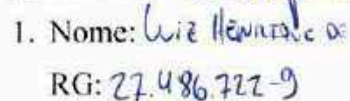 1. Nome: Luiz Henrique de
RG: 27.486.722-9